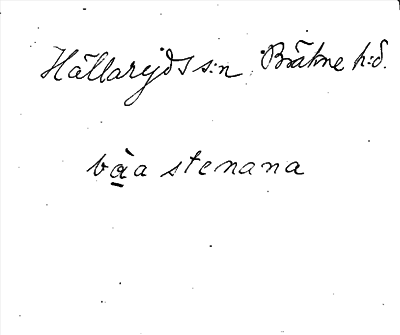 Hällaryds s:n Bräkne h:d.
bàa stenana